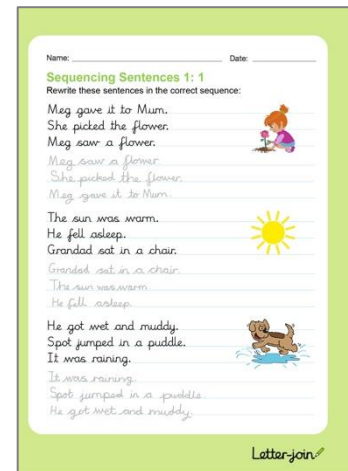 Name: Date:
Sequencing Sentences 1: 1
Rewrite these sentences in the correct sequence:
Meg gave it to Mum.
She picked the flower.
Meg saw a flower.
Meg saw a flower
She picked the flower.
Meg gave it to Mum.
The sun was warm.
He fell asleep.
Grandad sat in a chair.
Grandad sat in a chair.
The sun was warm
He fell asleep
He got wet and muddy.
Spot jumped in a puddle.
It was raining.
It was raining.
Spot jumped in a puddle.
He got wet and muddy.
Letter-join